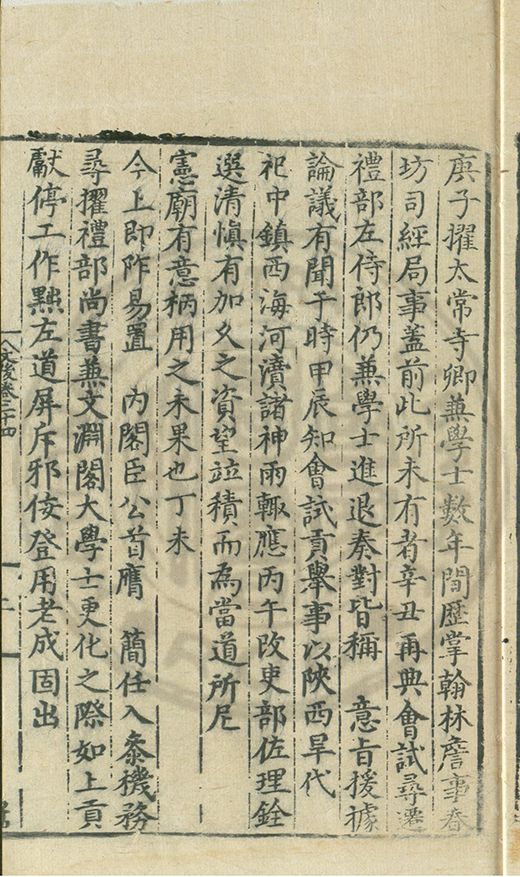 庚子擢太常寺卿兼學士數年間歷掌翰林詹事春
坊司經局事蓋前此所未有者辛丑再典會試尋遷
禮部左侍郎仍兼學士進退奏對皆稱 意旨援據
論議有聞于時甲辰知會試貢舉事以陝西旱代
祀中鎮西海河瀆諸神雨輙應丙午改吏部佐理銓
選清慎有加久之資望竝積而為當道所尼
憲廟有意柄用之未果也丁未
今上即阼易置 內閣臣公首膺 簡任入叅機務
尋擢禮部尚書兼文淵閣大學士更化之際如上貢
獻停工作黜左道屏斥邪佞登用老成固出
文後卷二十四